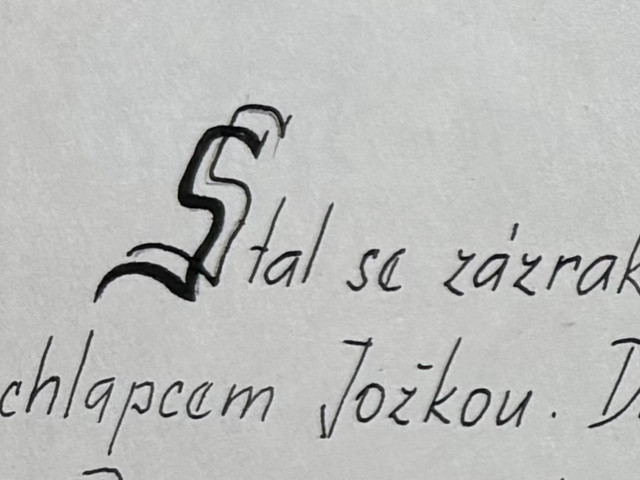 Stal se zázrak
chlapcem Jožkou. D